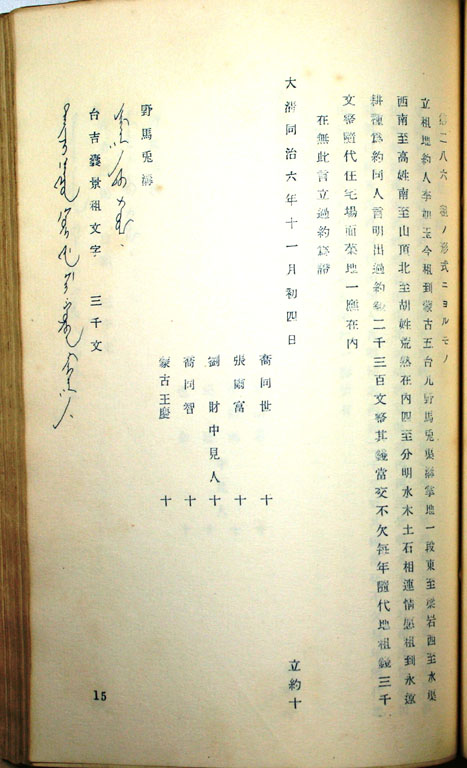 第二八六 租ノ形式ニヨルモノ
立租地約人李朝玉今租到蒙古五台九野馬兎吳海掌地一段東至梁岩西至水渠
西南至高姓南至山頂北至胡姓荒熟在內四至分明水木土石相連情愿租到永遠
耕種爲約同人言明出過約錢二千三百文整其錢當交不欠每年隨代地租錢三千
文整隨代住宅場面菜地一應在內
在無此言立過約爲證
大淸同治六年十一月初四日 立約十
喬同世 十
張爾富 十
劉財中見人 十
喬同智 十
蒙古王慶 十
野馬兎海
台吉囊景祖文字 三千文
15